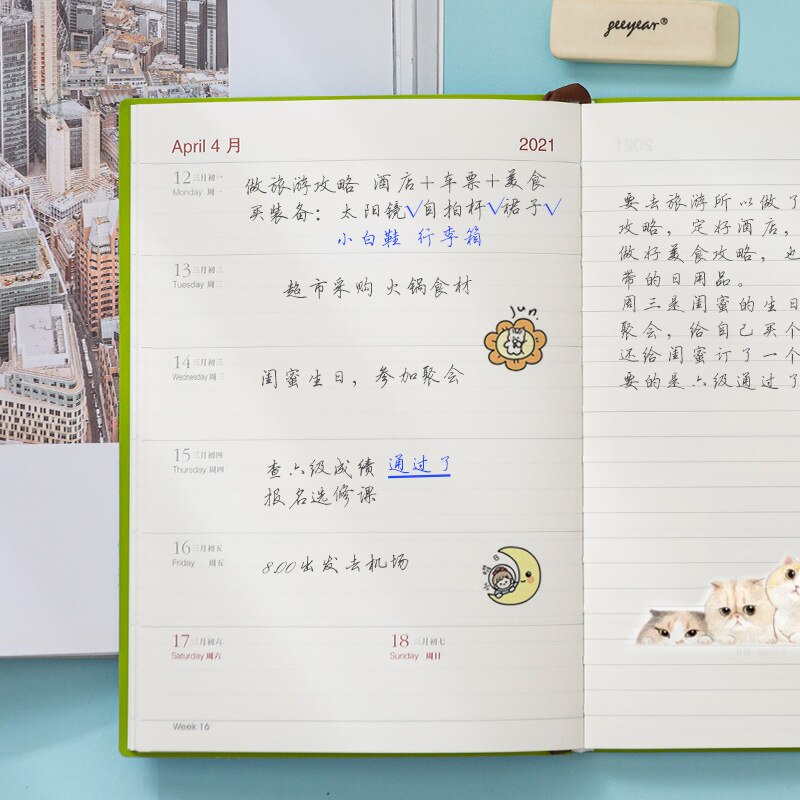 geeyear®
April 4 月
2021
12 三月初一
Monday 周一
做旅游攻略 酒店+车票+美食
买装备: 太阳镜✓自拍杆✓裙子✓
小白鞋 行李箱
13 三月初二
Tuesday 周二
超市采购 火锅食材
Jun.
14 三月初三
Wednesday 周三
闺蜜生日, 参加聚会
15 三月初四
Thursday 周四
查六级成绩 通过了
报名选修课
16 三月初五
Friday 周五
8:00出发去机场
17 三月初六
Saturday 周六
18 三月初七
Sunday 周日
Week 16
要去旅游所以做了
攻略, 定好酒店,
做好美食攻略, 也
带的日用品。
周三是闺蜜的生日
聚会, 给自己买个
还给闺蜜订了一个
要的是六级通过了